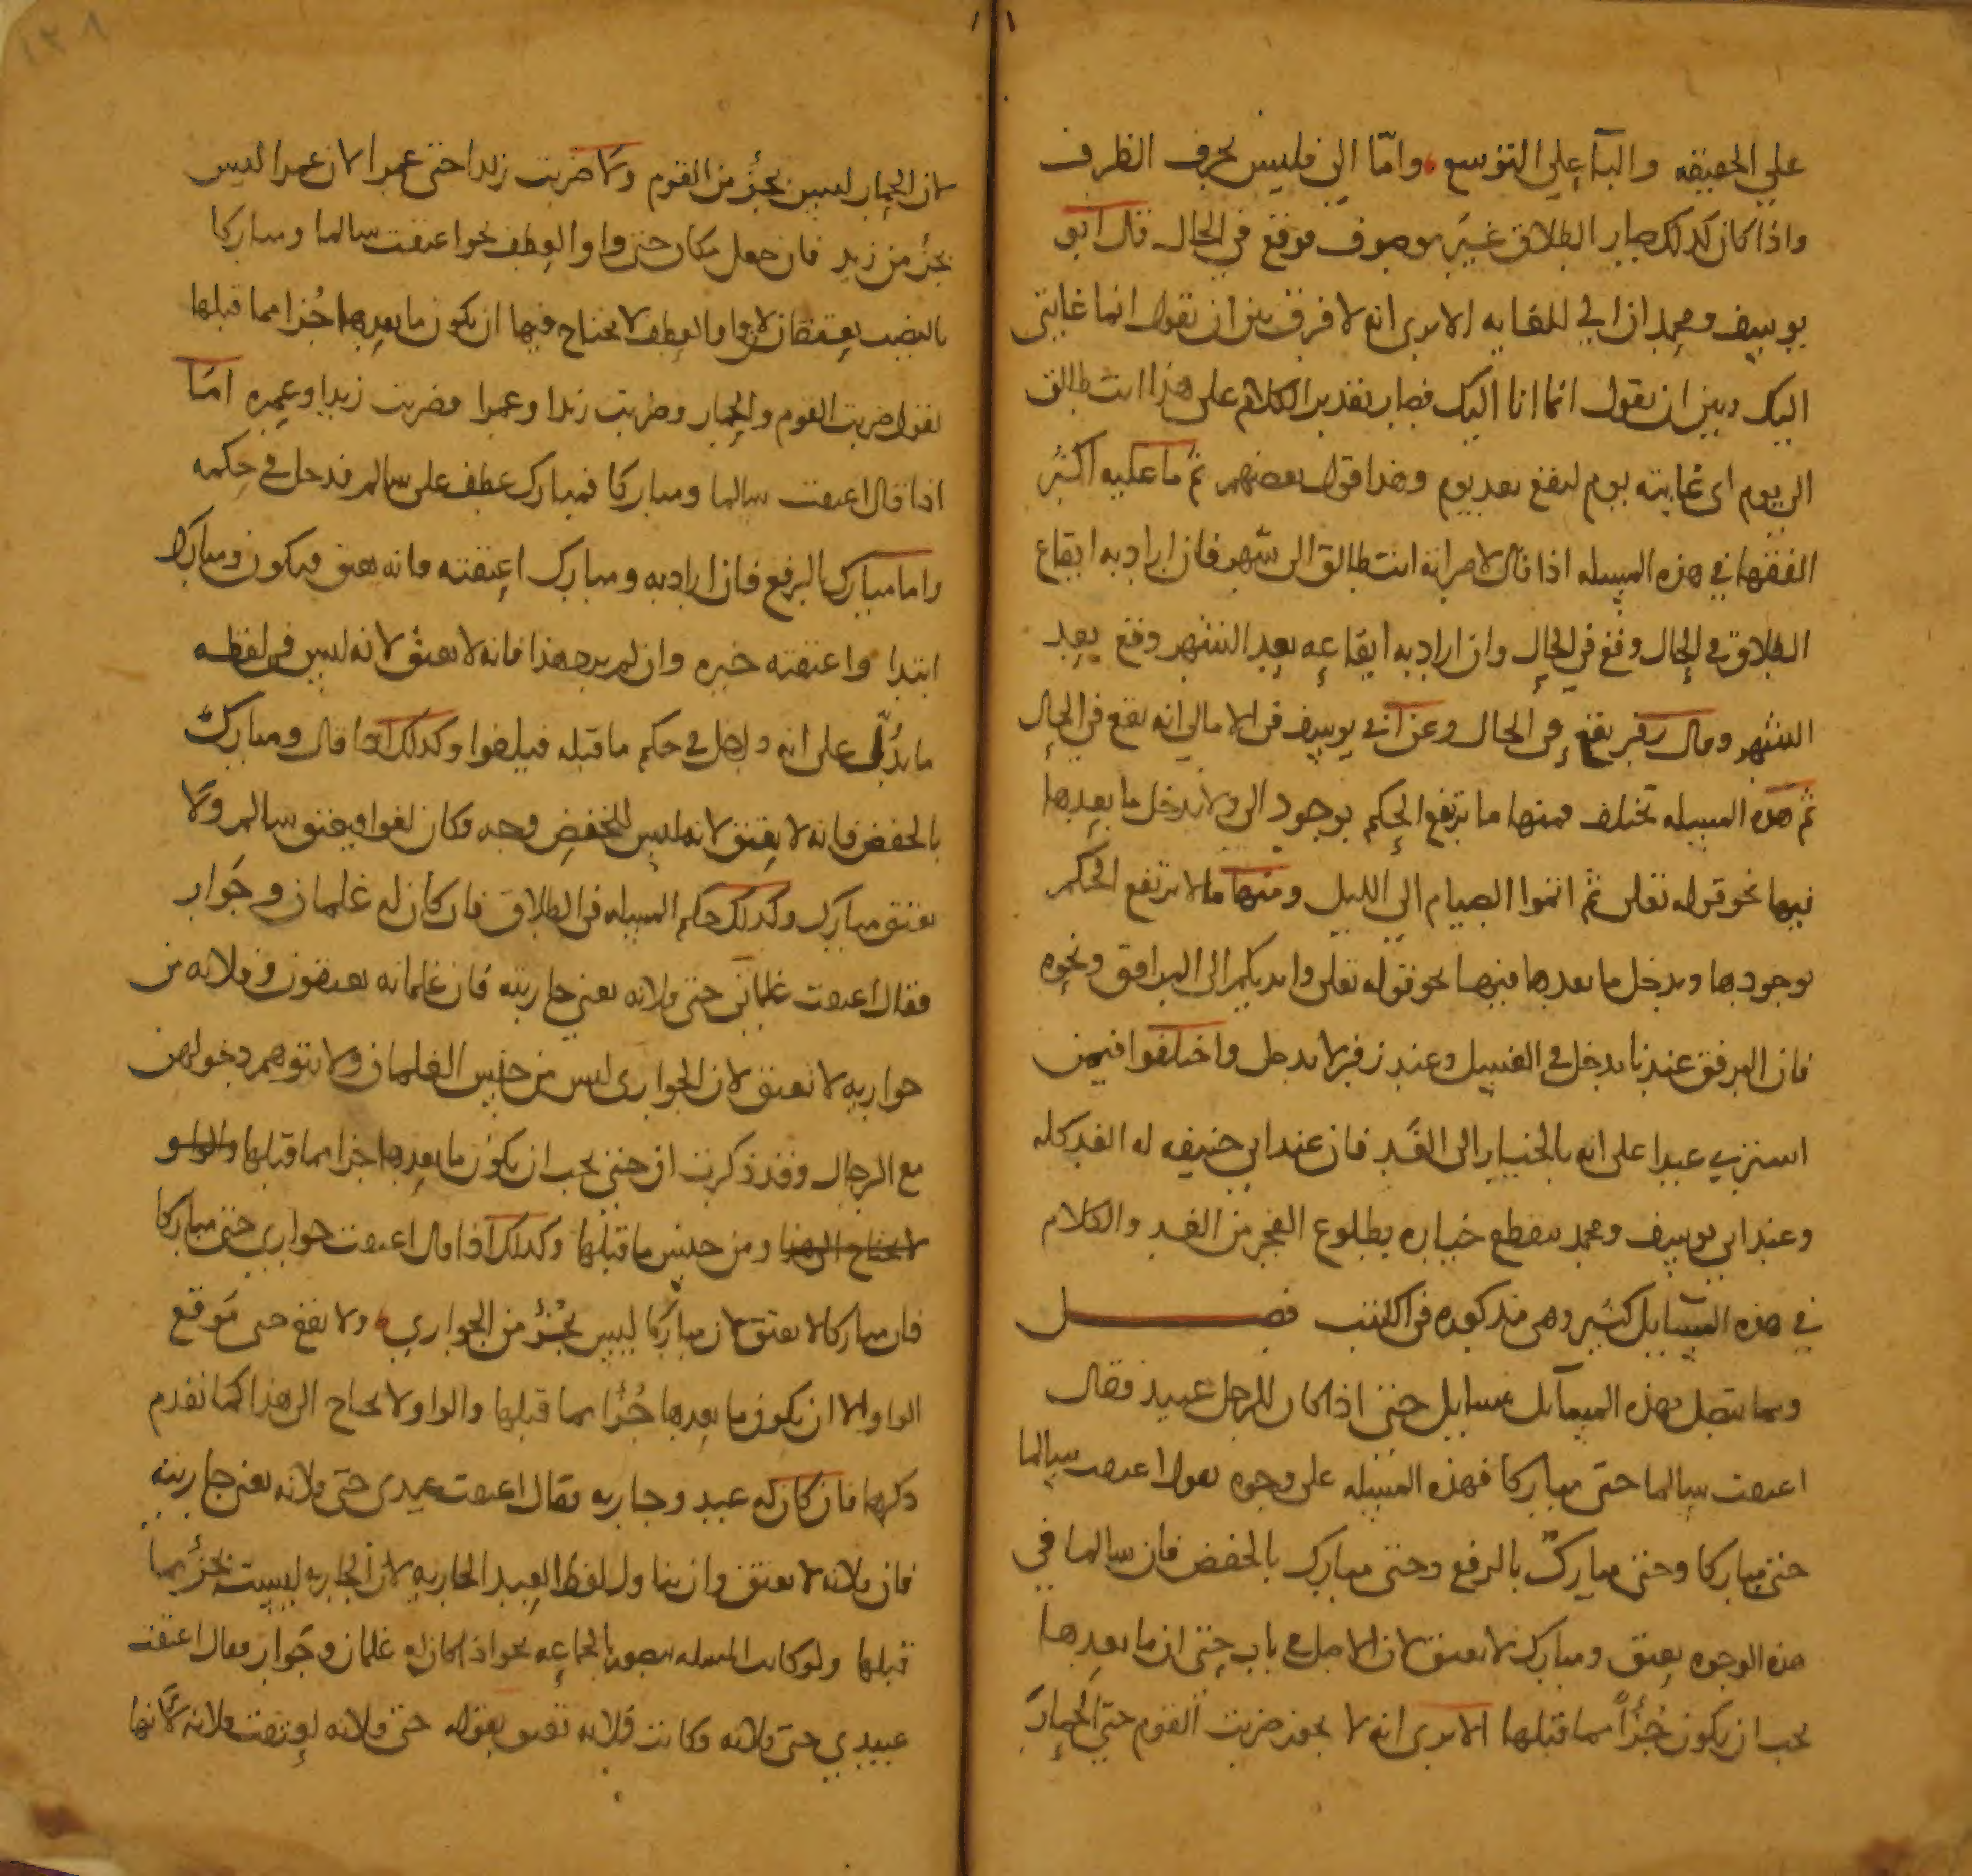 على الحقيقه والبآ على التوسع واما الى فليس بحرف الظرف
واذا كان كذلك صار الطلاق غير موصوف فوقع في الحال قال ابو
يوسف ومحمد ان الى للغايه الا ترى انه لا فرق بين ان تقول انما غايتى
اليك وبين ان تقول انما انا اليك فصار تقدير الكلام على هذا انت طالق
الى يوم اى غايته يوم ليقع بعد يوم وهذا قول بعضهم ثم ما عليه اكثر
الفقها في هذه المسله اذا قال لامراته انت طالق الى شهر فان اراد به ايقاع
الطلاق في الحال وقع في الحال وان اراد به ايقاعه بعد الشهر وقع بعد
الشهر وقال زفر يقع في الحال وعن ابى يوسف في الامالي انه يقع في الحال
ثم هذه المسله تختلف فمنها ما يرتفع الحكم بوجود الى ولا يدخل ما بعدها
فيها نحو قوله تعلى ثم اتموا الصيام الى الليل ومنها ما لا يرتفع الحكم
بوجودها ويدخل ما بعدها فيها نحو قوله تعلى وايديكم الى المرافق ونحوه
فان المرفق عندنا يدخل في الغسل وعند زفر لا يدخل واختلفوا فيمن
اشترى عبدا على انه بالخيار الى الغد فان عند ابى حنيفه له الغد كله
وعند ابى يوسف ومحمد ينقطع خياره بطلوع الفجر من الغد والكلام
في هذه المسايل كثير وهى مذكوره في الكتب فصل
ومما يتصل بهذه المسآئل مسايل حتى اذا كان للرجل عبيد فقال
اعتقت سالما حتى مباركا فهذه المسله على وجوه تقول اعتقت سالما
حتى مباركا وحتى مبارك بالرفع وحتى مبارك بالخفض فان سالما في
هذه الوجوه يعتق ومبارك لا يعتق لان الاصل في باب حتى ان ما بعدها
يجب ان يكون جزأ مما قبلها الا ترى انه لا يجوز ضربت القوم حتى الحمار
لان الحمار ليس بجزء من القوم ولا ضربت زيدا حتى عمرا لان عمرا ليس
بجزء من زيد فان جعل مكان حتى واو العطف نحو اعتقت سالما ومباركا
بالنصب يعتقان لان واو العطف لا يحتاج فيها ان يكون ما بعدها جزا مما قبلها
تقول ضربت القوم والحمار وضربت زيدا وعمرا وضربت زيدا وغيره اما
اذا قال اعتقت سالما ومباركا فمبارك عطف على سالم فدخل في حكمه
واما مبارك بالرفع فان اراد به ومبارك اعتقته فانه يعتق فيكون ومبارك
ابتدا واعتقته خبره وان لم يرد هذا فانه لا يعتق لانه ليس في لفظه
ما يدل على انه داخل في حكم ما قبله فيلغوا وكذلك اذا قال ومبارك
بالخفض فانه لا يعتق لانه ليس للخفض وجه فكان لغوا فيعتق سالم ولا
يعتق مبارك وكذلك حكم المسله في الطلاق فان كان له غلمان وجوار
فقال اعتقت غلماني حتى فلانه يعني جاريته فان غلمانه يعتقون وفلانه من
جواريه لا تعتق لان الجوارى ليس من جنس الغلمان ولا يتوهم دخولهن
مع الرجال وقد ذكرت ان حتى يجب ان يكون ما بعدها جزا مما قبلها والواو
لا يحتاج الى هذا ومن جنس ما قبلها وكذلك اذا قال اعتقت جواري حتى مباركا
فان مباركا لا يعتق لان مباركا ليس بجزء من الجواري ولا يقع حتى موقع
الواو الا ان يكون ما بعدها جزأ مما قبلها والواو لا يحتاج الى هذا كما تقدم
ذكرها فان كان له عبيد وجاريه فقال اعتقت عبيدى حتى فلانه يعني جاريته
فان فلانه لا تعتق وان يتناول لفظ العبيد الجاريه لان الجاريه ليست بجزء مما
قبلها ولو كانت المسله بصورة الجماعه نحو اذا كان له غلمان وجوار فقال اعتقت
عبيدي حتى فلانه وكانت فلانه تعتق بقوله حتى فلانه لعتقت فلانه لانها